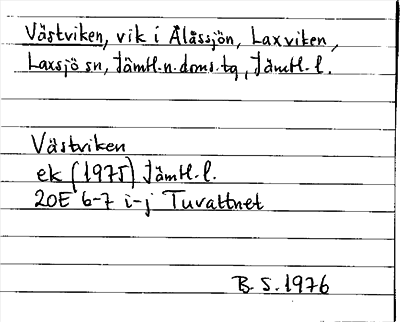 Västviken, vik i Ålåssjön, Laxviken,
Laxsjö sn, Jämtl. n. doms. tg, Jämtl. l.
Västviken
ek (1975) Jämtl. l.
20E 6-7 i-j Tuvattnet
B. S. 1976